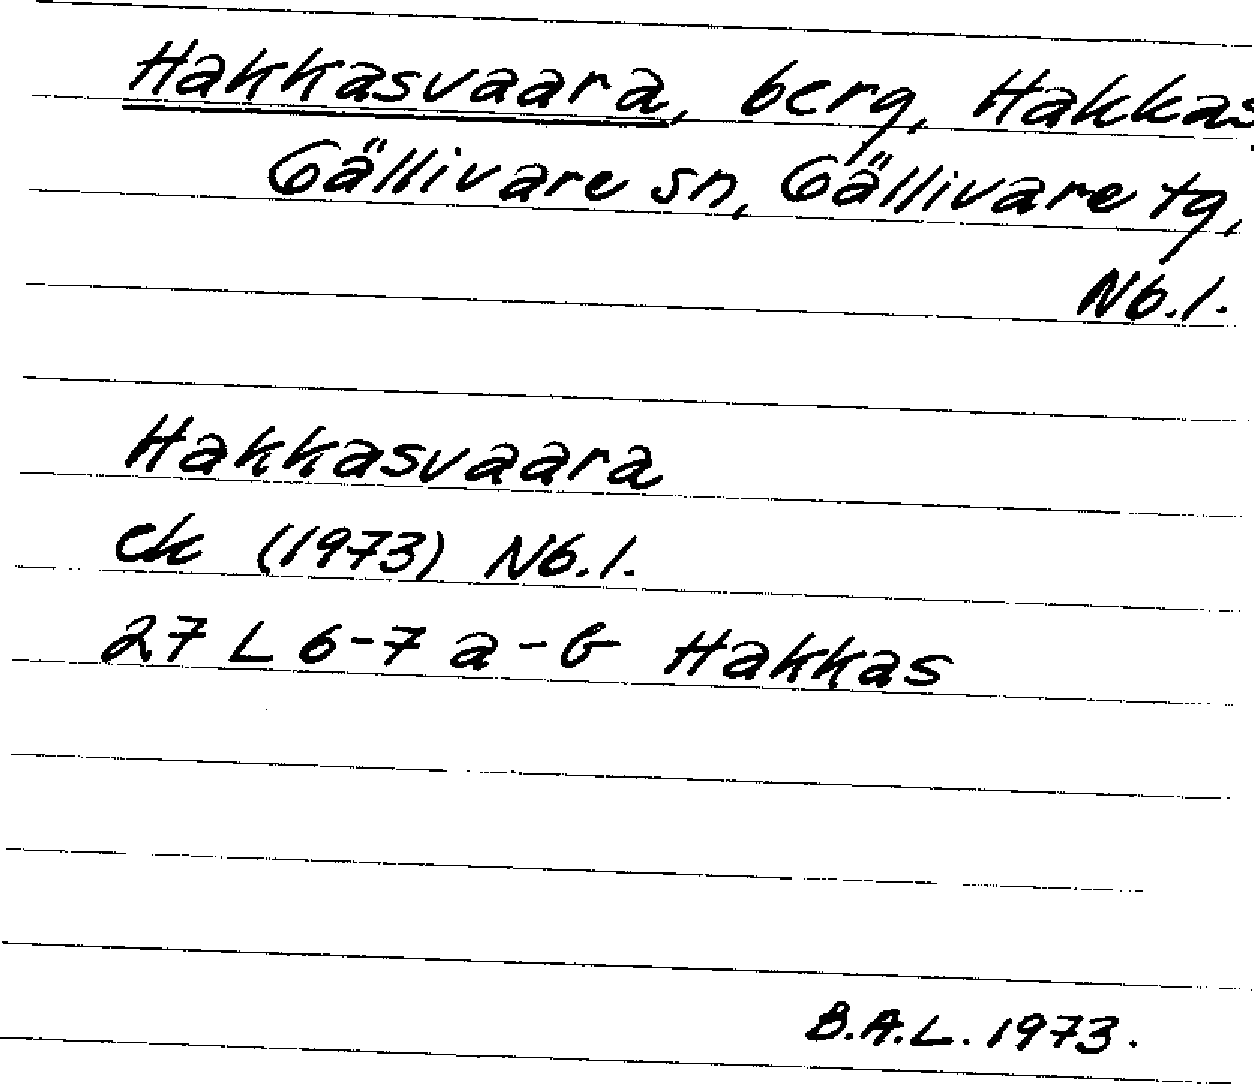 Hakkasvaara, berg, Hakkas,
Gällivare sn, Gällivare tg,
Nb.l.
Hakkasvaara
ek (1973) Nb.l.
27 L 6-7 a-b Hakkas
B.A.L. 1973.